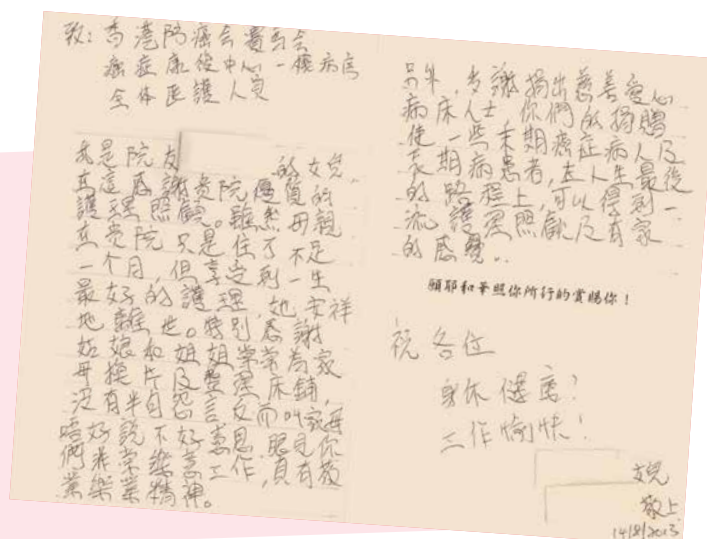 致：香港防癌會賽馬會
癌症康復中心一樓病房
全体医護人員
我是院友 的女兒，
在這感謝貴院優質的
護理照顧。雖然母親
在貴院只是住了不足
一个月，但享受到一生
最好的護理，她安祥
地離世。特別感謝
姑娘和姐姐常常為家
母換片及整理床鋪，
沒有半句怨言反而叫家母
唔好說不好意思，眼見你
們非常樂意工作，真有敬
業樂業精神。
另外，多謝捐出慈善愛心
病床人士，你們的捐贈
使一些末期癌症病人及
長期病患者，在人生最後
的路程上，可以得到一
流護理照顧及有家
的感覺..
願耶和華照你所行的賞賜你！
祝各位
身体健康！
工作愉快！
女兒
敬上
14/8/2013